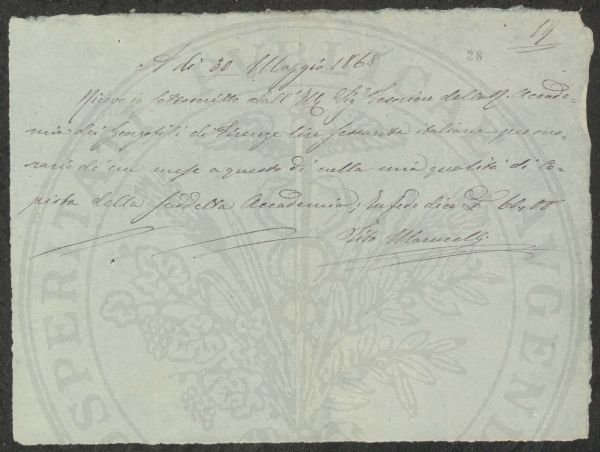 19
28
A dì 30 Maggio 1868
Ricevo io sottoscritto dall' Sig. Tesoriere della R. Accade-
mia dei Georgofili di Firenze lire sessanta italiane per ono-
rario di un mese a questo dì nella mia qualità di Co-
pista della suddetta Accademia; In fede dico £ 60,00
Vito
PROSPERITATI AUGENDAE